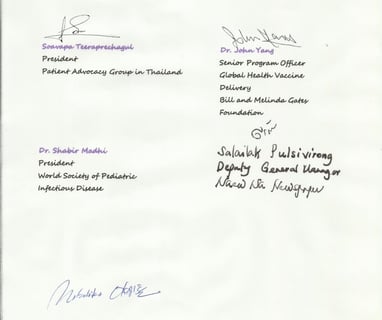 Soavapa Teeraprechagul
President
Patient Advocacy Group in Thailand
John Yang
Dr. John Yang
Senior Program Officer
Global Health Vaccine
Delivery
Bill and Melinda Gates
Foundation
Salailak Pulsivirong
Deputy General Manager
Dr. Shabir Madhi
President
World Society of Pediatric
Infectious Disease